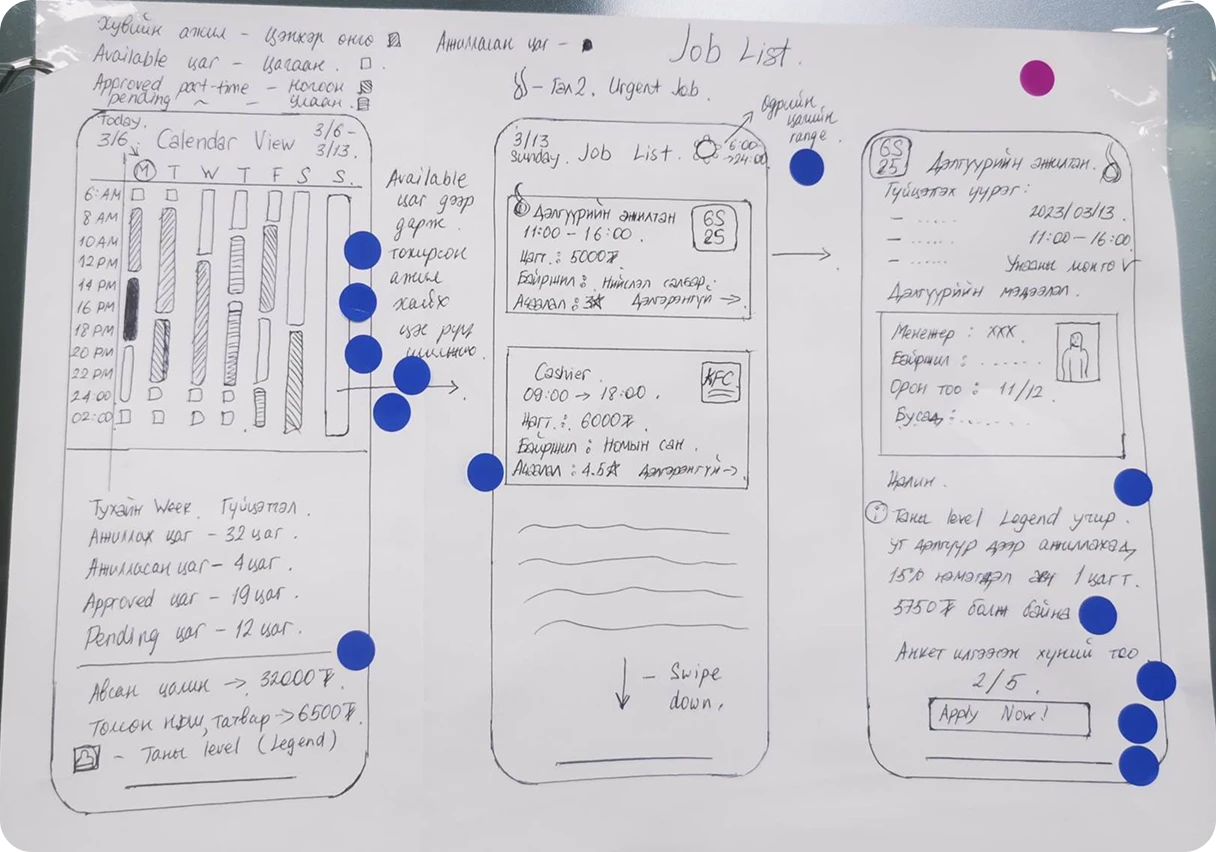 Хувийн ажил – цэнхэр өнгө
Available цаг – цагаан.
Approved part-time – ногоон
pending ~ – улаан.
Ажилласан цаг –
Job List.
– Гал 2. Urgent Job.
Today.
3/6.
Calendar View
3/6 –
3/13.
M T W T F S S.
6:AM
8 AM
10 AM
12 PM
14 PM
16 PM
18 PM
20 PM
22 PM
24:00
02:00
Тухайн Week. Гүйцэтгэл.
Ажиллах цаг – 32 цаг.
Ажилласан цаг – 4 цаг.
Approved цаг – 19 цаг.
Pending цаг – 12 цаг.
Авсан цалин → 32000₮.
татвар → 6500₮.
– Таны level (Legend)
Available
цаг дээр
дарж.
тохирсон
ажил
хайх
цэс рүү
шилжинэ.
3/13
Sunday. Job List.
6:00
→24:00
Өдрийн
цагийн
range.
Дэлгүүрийн ажилтан
11:00 – 16:00.
GS
25
Цагт.: 5000₮
Байршил: Нийслэл салбар.
Ачаалал: 3☆ Дэлгэрэнгүй →.
Cashier.
09:00 → 18:00.
KFC
Цагт.: 6000₮.
Байршил: Номын сан.
Ачаалал: 4.5☆ Дэлгэрэнгүй →
– Swipe
down.
GS
25
Дэлгүүрийн ажилтан.
Гүйцэтгэх үүрэг:
– ...... 2023/03/13.
– ...... 11:00 – 16:00.
– ...... Унааны мөнгө √
Дэлгүүрийн мэдээлэл.
Менежер: xxx.
Байршил: ......
Орон тоо: 11/12.
Бусад: ......
Цалин.
i Таны level Legend учир.
уг дэлгүүр дээр ажиллахад,
15% нэмэгдэл 1 цагт.
5750₮ болж байна
Анкет илгээсэн хүний тоо
2/5.
Apply Now!